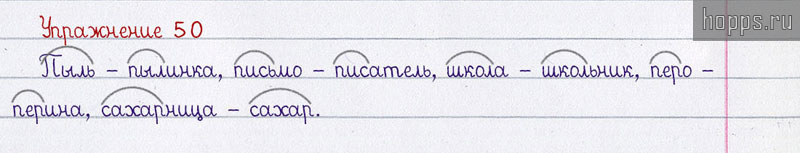 hopps.ru
Упражнение 50
Пыль – пылинка, письмо – писатель, школа – школьник, перо –
перина, сахарница – сахар.